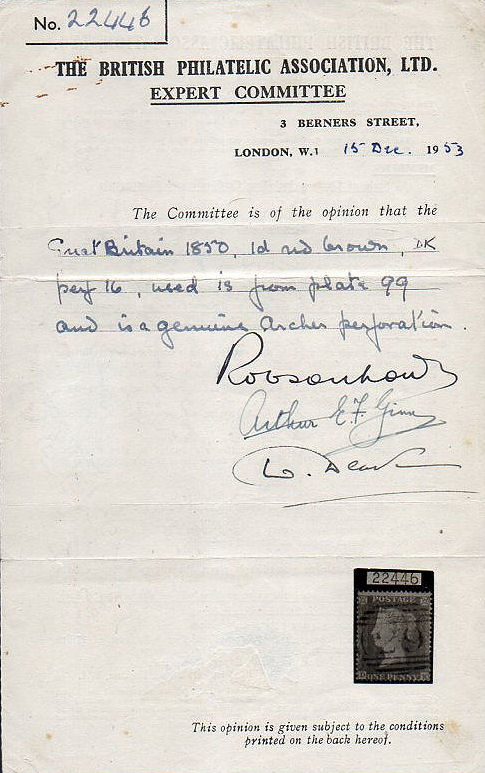 No. 22446
THE BRITISH PHILATELIC ASSOCIATION, LTD.
EXPERT COMMITTEE
3 BERNERS STREET,
LONDON, W.1 15 Dec. 1953
The Committee is of the opinion that the
Great Britain 1850, 1d red brown,
perf 16, used is from plate 99
and is a genuine Archer perforation.
Arthur E. F. Ginn
22446
POSTAGE
ONE PENNY
This opinion is given subject to the conditions
printed on the back hereof.